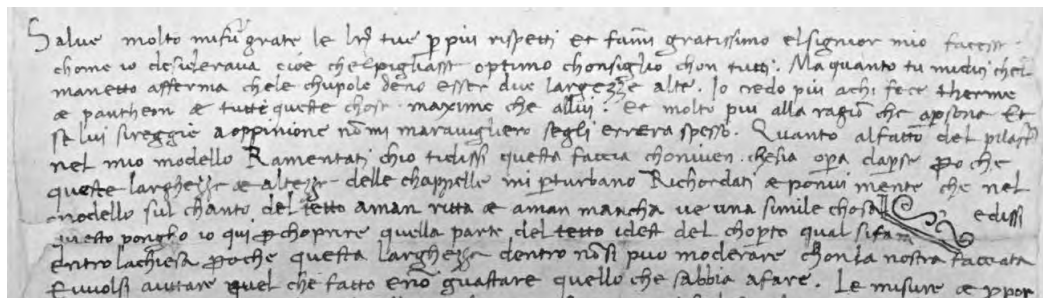 Salve molto mi fur grate le lrẽ tue p piu rispetti et fumi gratissimo el signior mio facesse
chome io desiderava cioe chel pigliasse optimo chonsiglio chon tutti. Ma quanto tu mi di chel
manetto afferma che le chupole deno esser due largezze alte. Io credo piu a chi fece therme
et pantheon et tutte queste chose maxime che allui. Et molto piu alla ragion che a psona Et
se lui si reggie a oppinione nõ mi maraviglero segli errera spesso. Quanto al fatto del pilastro
nel mio modello Ramentati chio ti dissi questa faccia chonvien che sia opa da pse po che
queste larghezze et altezze delle chappelle mi pturbano Richordati et ponvi mente che nel
modello sul chanto del tetto a man ritta et a man mancha ve una simile chosa e dissi
questo pongho io qui p choprire quella parte del tetto idest del chopto qual si fara
entro la chiesa po che questa larghezze dentro nõ si puo moderare chon la nostra facciata
E vuolsi aiutare quel che fatto e nõ guastare quello che sabbia a fare. Le misure et ppor